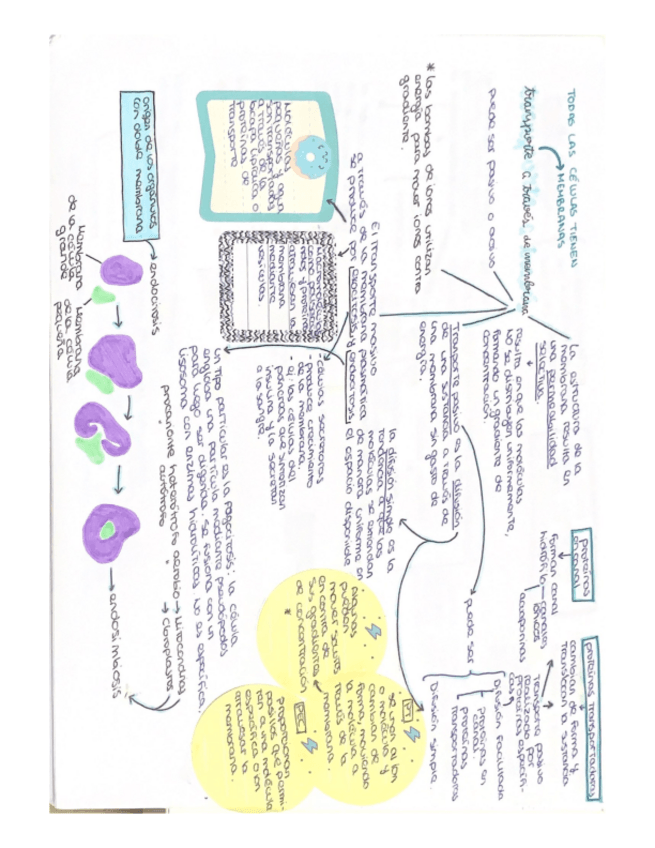 TODAS LAS CÉLULAS TIENEN
MEMBRANAS
transporte a través de membrana
puede ser pasivo o activo
* Las bombas de iones utilizan
energía para mover iones contra
gradiente.
La estructura de la
membrana resulta en
una permeabilidad
selectiva.
resulta en que las moléculas
NO se distribuyen uniformemente,
formando un gradiente de
concentración.
proteínas
en canal
forman canal
hidrófilo
canales
iónicos
acuaporinas
proteínas transportadoras
cambian de forma y
trasladan la sustancia
Transporte pasivo
realizado por
proteínas específi-
cas
Transporte pasivo es la difusión
de una sustancia a través de
una membrana sin gasto de
energía.
puede ser
Difusión facilitada
proteínas en
canal
proteínas
transportadoras
Difusión simple.
la difusión simple es la
tendencia a que las
moléculas se extiendan
de manera uniforme en
el espacio disponible
El transporte masivo
a través de la membrana plasmática
se produce por exocitosis y endocitosis
Moléculas
pequeñas y agua
son transportadas
a través de la
bicapa lipídica o
proteínas de
transporte
Macromoléculas
como polisacá-
ridos y proteínas
atraviesan la
membrana
mediante
vesículas.
- células secretoras
- produce crecimiento
de la membrana.
- ej: las células del
páncreas que sintetizan
insulina y la secretan
a la sangre.
un tipo particular es la fagocitosis: la célula
engloba una partícula mediante pseudópodos
para luego ser digerida. Se fusiona con un
lisosoma con enzimas hidrolíticas. No es específica.
PT
se unen a ion
o molécula y
cambian de
forma, moviendo
la molécula a
través de la
membrana.
Algunas
pueden
mover solutos
en contra de
sus gradientes
de concentración
*
PEC
proporcionan
pasillos que permi-
ten a una molécula
específica o ion
atravesar la
membrana.
origen de los orgánulos
con doble membrana
endocitosis
Membrana
de la célula
grande
Membrana
de la célula
pequeña
endosimbiosis
procarionte heterótrofo aerobio → Mitocondrias
autótrofo → Cloroplastos